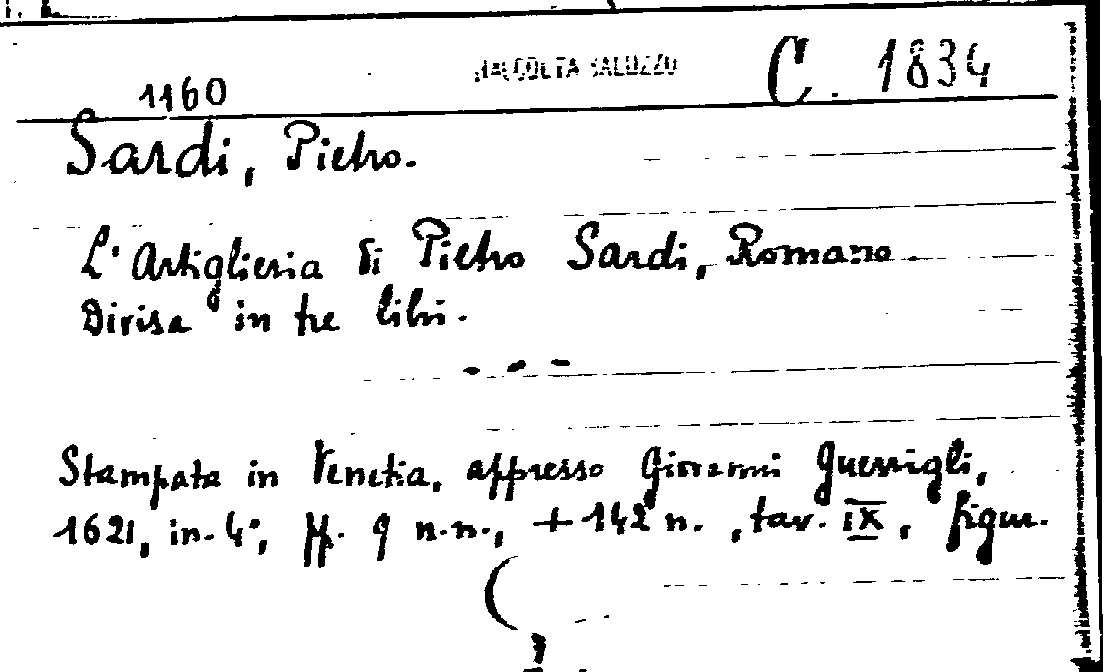 1160 RACCOLTA SALUZZO C. 1834
Sardi, Pietro.
L'Artiglieria di Pietro Sardi, Romano.
Divisa in tre libri.
- - -
Stampata in Venetia, appresso Giovanni Guerrigli,
1621, in-4°, ff. 9 n.n., + 142 n., tav. IX, figur.